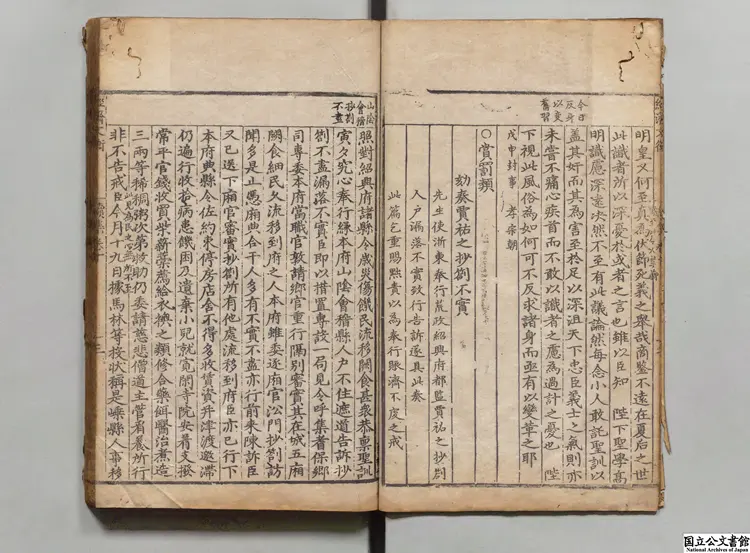 今日
反身
以変
舊習
明皇又何至真為伏節死義之舉哉商鑒不遠在夏后之世
此識者所以深憂於或者之言也雖以臣知 陛下聖學高
明識慮深遠決然不至有此議論然每念小人敢託聖訓以
蓋其奸而其為害至於足以深沮天下忠臣義士之氣則亦
未嘗不痛心疾首而不敢以識者之慮為過計之憂也 陛
下視此風俗為如何可不反求諸身而亟有以變革之耶
戊申封事 孝宗朝
○賞罰類
劾奏賈祐之抄劄不實
先生使浙東奉行荒政紹興府都監賈祐之抄劄
人戶漏落不實致行告訴遂具此奏
此篇乞重賜黜責以為奉行賑濟不虔之戒
山陰
會稽
抄劄
不盡
照對紹興府諸縣今歲災傷饑民流移闕食甚衆恭稟聖訓
寅夕究心奉行緣本府山陰會稽縣人戶不住遮道告訴抄
劄不盡漏落不實臣即以措置專設一局見今呼集耆保鄉
司專委本府當職官敦請鄉官重行隔別審實其在城五廂
闕食細民又流移到府之人本府雖委逐廂官沿門抄劄訪
聞多是止憑廂典合干人多有不實不盡亦行前來陳訴臣
又已選下廂官審實抄劄所有他處流移到府臣亦已行下
本府典縣令佐約束停房店舍不得多收賃資升津渡邀滯
仍遍行收養病患饑困及遺棄小兒就寬閑寺院安著支撥
常平官錢收買柴薪藁薦給衣襖之類修合藥餌醫治煮造
三兩等稀稠粥次第救助仍委請慈悲僧道主管看養所行
非不告戒臣今月十九日據馬林等投狀稱是嵊縣人事移
国立公文書館
National Archives of Japan